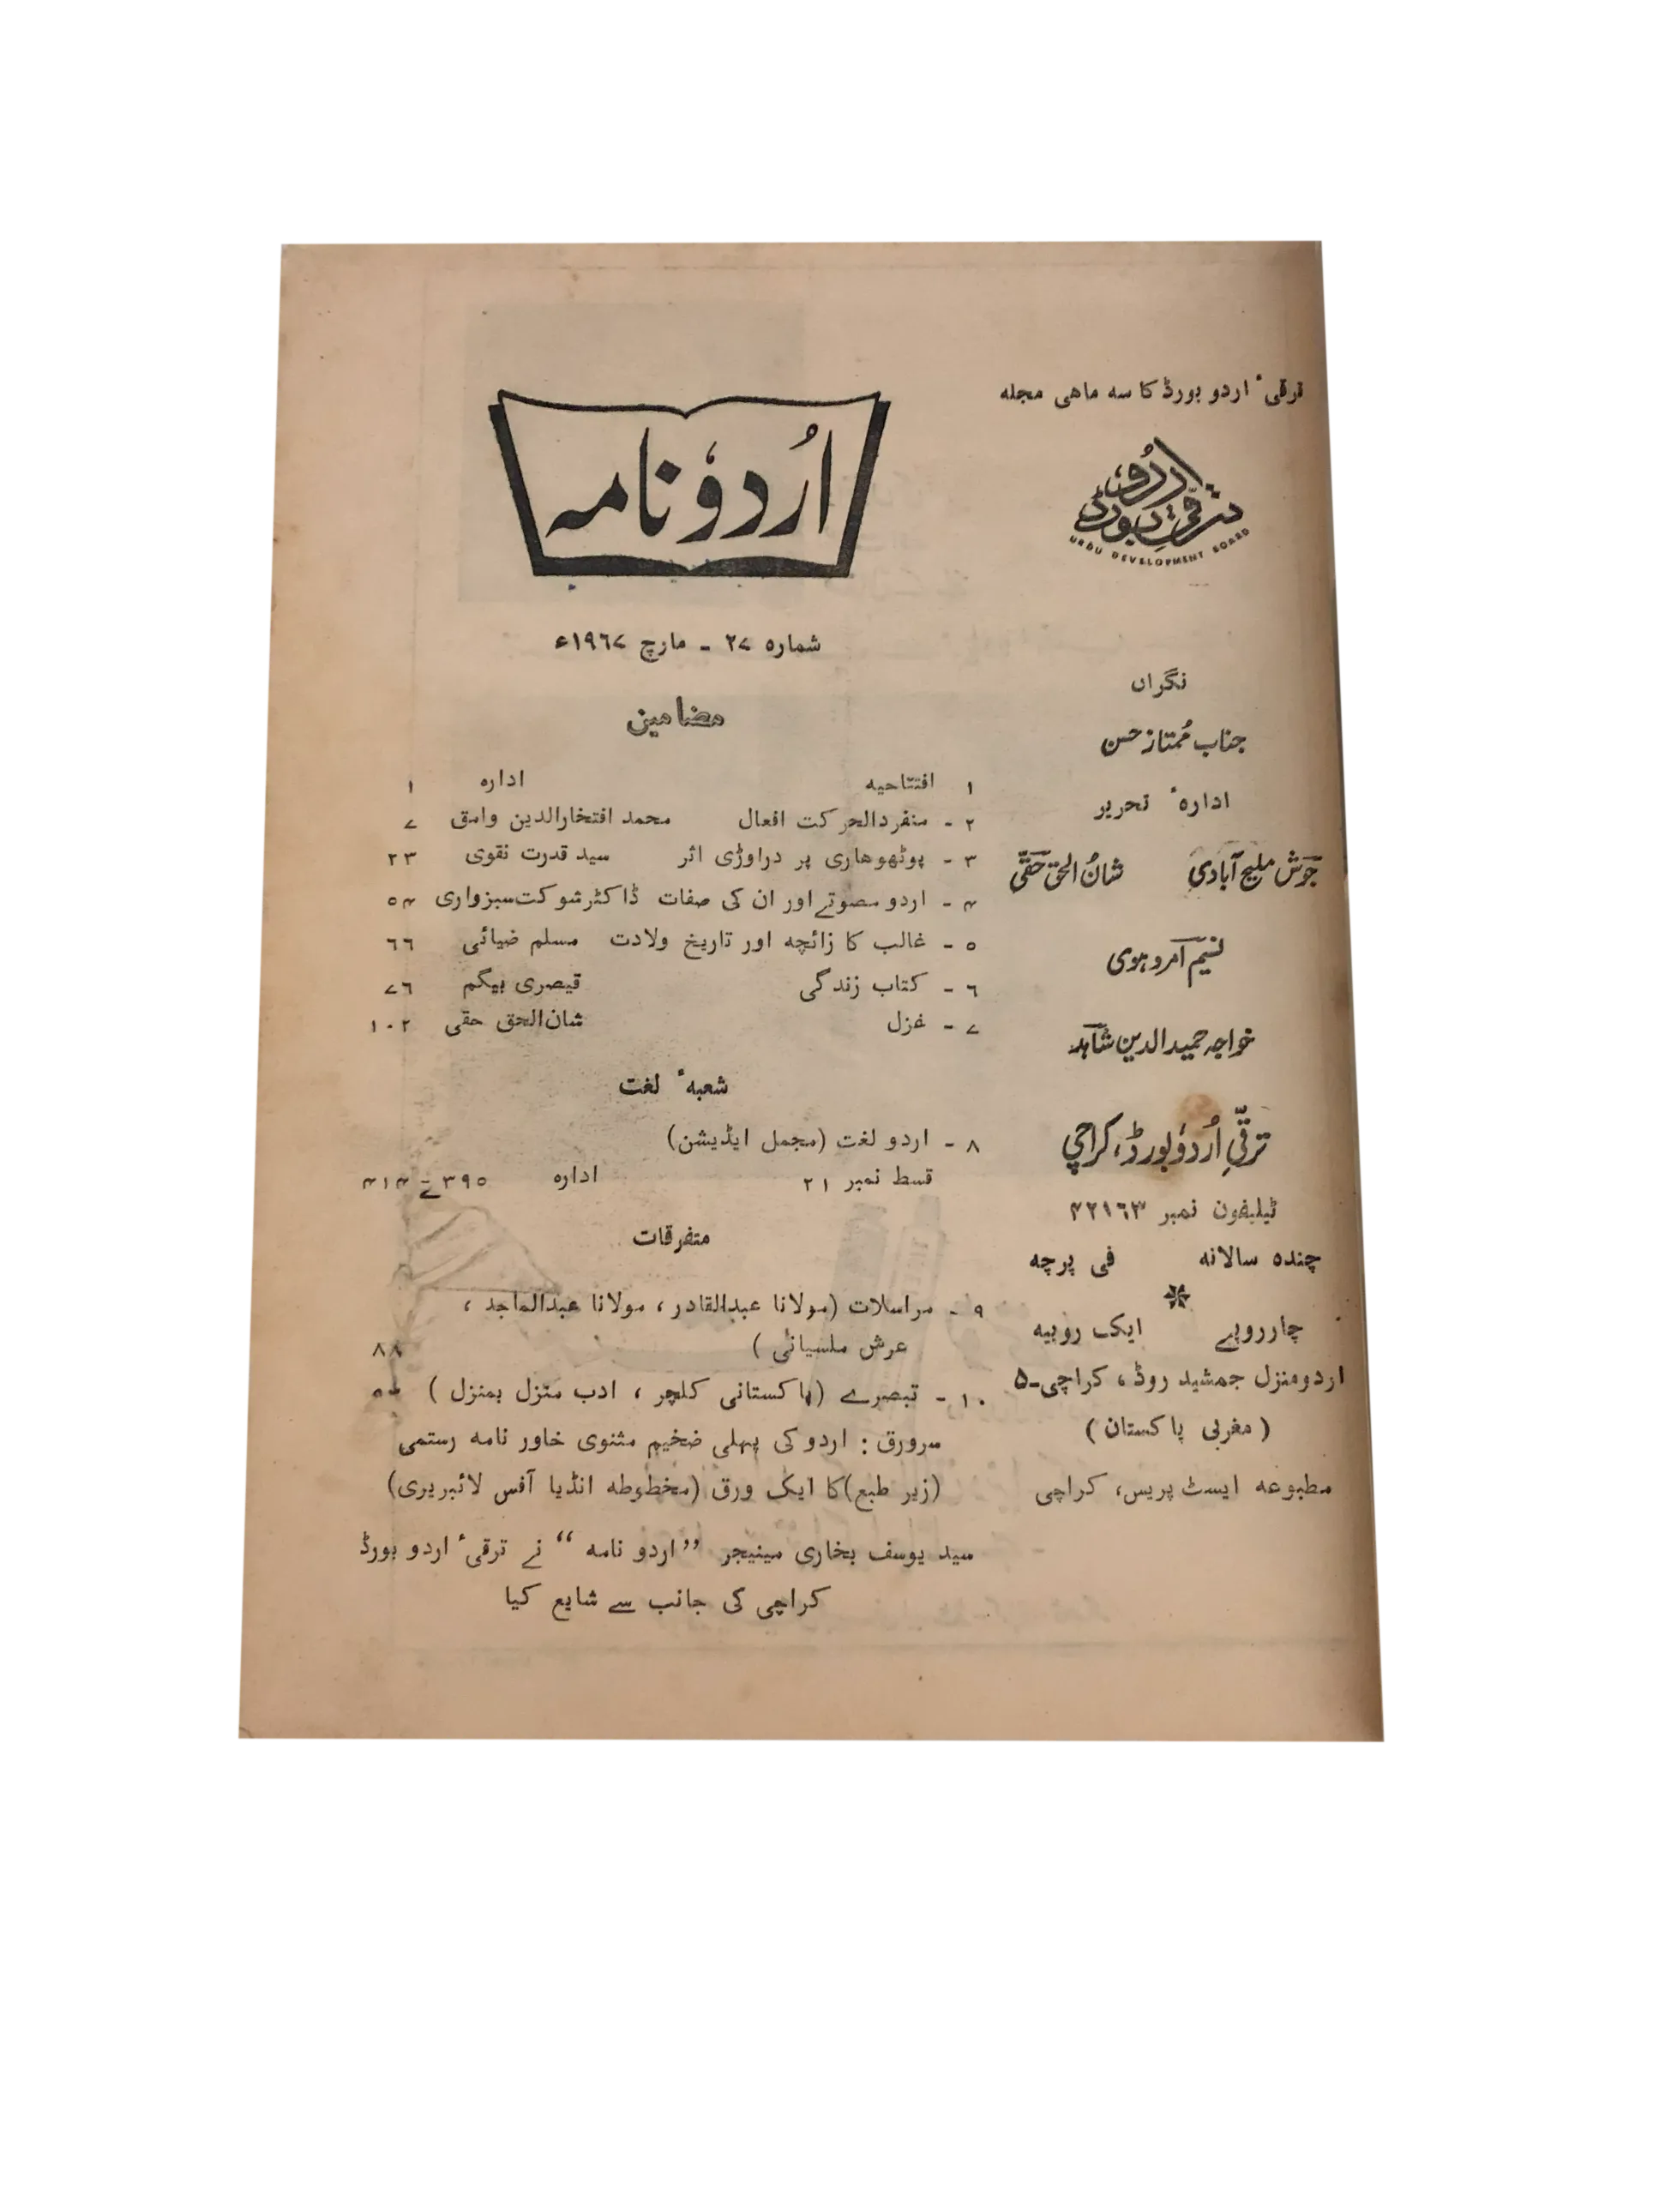 ترقیٔ اردو بورڈ کا سه ماهی مجله
ترقی اردو بورڈ
URDU DEVELOPMENT BOARD
نگراں
جناب مُمتاز حسن
ادارهٔ تحریر
جوش ملیح آبادی شانُ الحق حقّی
نسیم آمروہوی
خواجہ حمید الدین شاہد
ترقّیِ اُردو بورڈ، کراچی
ٹیلیفون نمبر ۴۲۱۶۳
چنده سالانه فی پرچه
چار روپے ایک روپیه
اردو منزل جمشید روڈ ، کراچی-۵
( مغربی پاکستان )
مطبوعه ایسٹ پریس، کراچی
اُردو نامہ
شماره ۲۷ - مارچ ۱۹٦۷ء
مضامین
۱ افتتاحیه اداره ۱
۲ - منفردالحرکت افعال محمد افتخارالدین وامق ۷
۳ - پوٹھوهاری پر دراوڑی اثر سید قدرت نقوی ۲۳
۴ - اردو مصوتے اور ان کی صفات ڈاکٹر شوکت سبزواری ۵۴
۵ - غالب کا زائچه اور تاریخ ولادت مسلم ضیائی ٦٦
٦ - کتاب زندگی قیصری بیگم ۷٦
۷ - غزل شان‌الحق حقی ۱۰۲
شعبهٔ لغت
۸ - اردو لغت (مجمل ایڈیشن)
قسط نمبر ۲۱ اداره ۳۹۵ تے ۴۱۴
متفرقات
۹ - مراسلات (مولانا عبدالقادر ، مولانا عبدالماجد ،
عرش ملسیانی ) ۸۸
۱۰ - تبصرے (پاکستانی کلچر ، ادب منزل بمنزل )
سرورق : اردو کی پہلی ضخیم مثنوی خاور نامه رستمی
(زیر طبع) کا ایک ورق (مخطوطه انڈیا آفس لائبریری)
سید یوسف بخاری مینیجر ”اردو نامه“ نے ترقیٔ اردو بورڈ
کراچی کی جانب سے شایع کیا